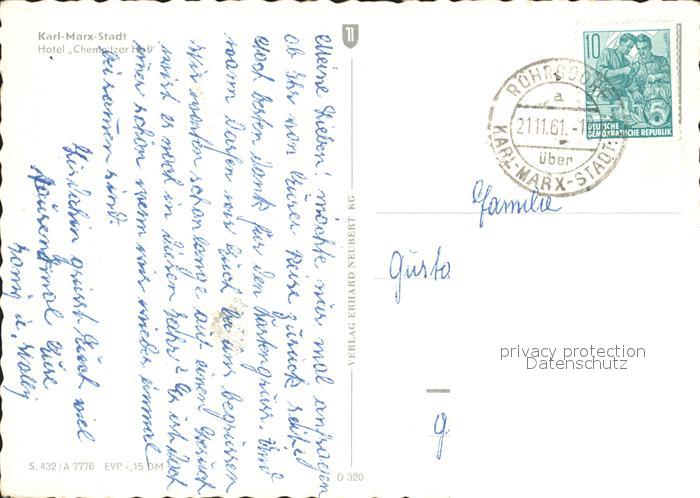 Karl-Marx-Stadt
Hotel „Chemnitzer Hof"
Meine Lieben! möchte nur mal anfragen
ob Ihr von Eurer Reise zurück seid?
Noch besten Dank für den Kartengruss. Und
wann dürfen wir Euch bei uns begrüssen
Wir warten schon lange auf einen Besuch
wird es noch in diesem Jahr? Es ist doch
immer schön wenn wir wieder einmal
beisamen sind.
Bis dahin grüsst Euch viel
tausendmal Eure
u.
S. 432/A 7776 EVP -,15 DM
VERLAG ERHARD NEUBERT KG
D 320
10
5
DEUTSCHE
DEMOKRATISCHE REPUBLIK
a
21.11.61.-1
über
KARL-MARX-STADT
Familie
Gusta
g.
privacy protection
Datenschutz